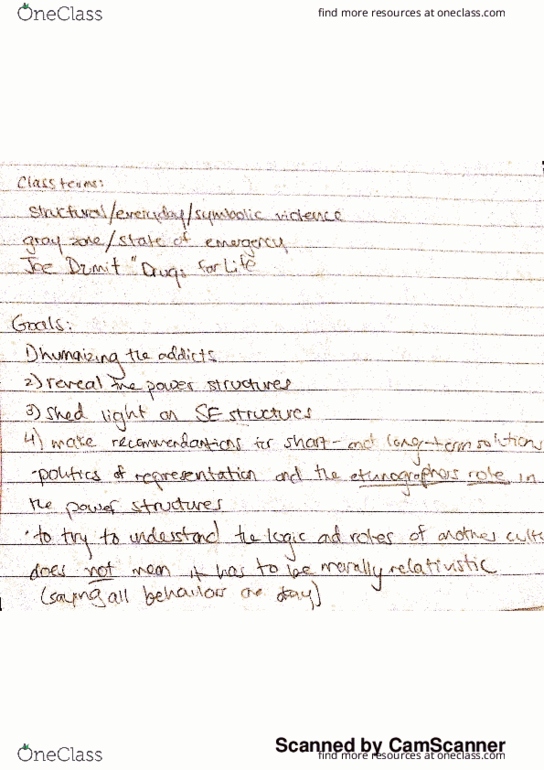 OneClass
find more resources at oneclass.com
Class terms:
structural/everyday/symbolic violence
gray zone/state of emergency
Joe Dumit "Drugs for Life"
Goals:
1) humaizing the addicts
2) reveal the power structures
3) shed light on SE structures
4) make recommendantions for short- and long-term solutions
·politics of representation and the etunographers role in
the power structures
·to try to understand the logic ad roles of another cultu
does not mean it has to be morally relativistic
(saying all behaviors are okay)
Scanned by CamScanner
OneClass
find more resources at oneclass.com